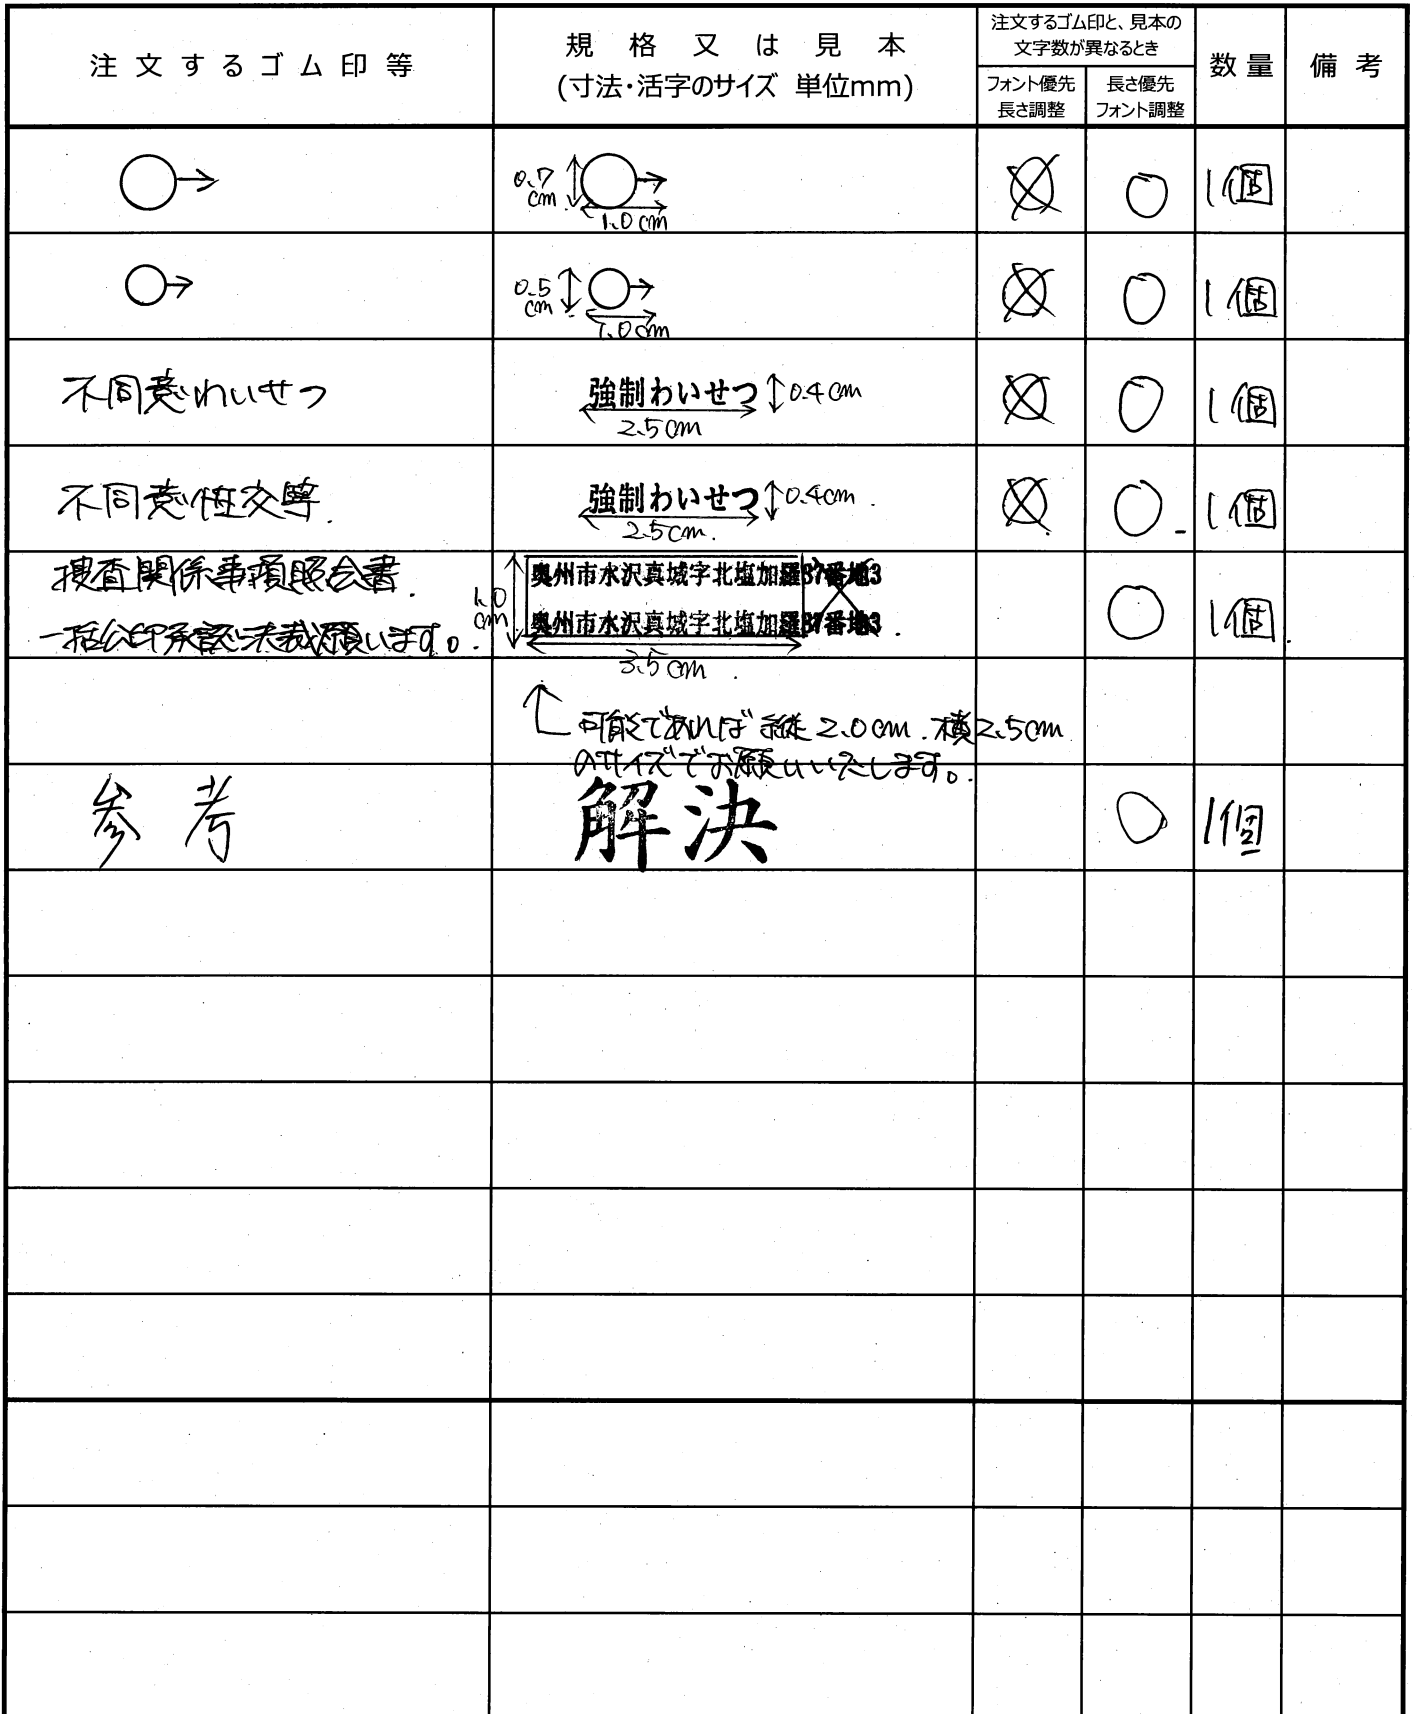 注文するゴム印等
規格又は見本
(寸法・活字のサイズ 単位mm)
注文するゴム印と、見本の
文字数が異なるとき
フォント優先
長さ調整
長さ優先
フォント調整
数量
備考
0.7
cm
1.0cm
1個
0.5
cm
1.0cm
1個
不同意わいせつ
強制わいせつ
0.4cm
2.5cm
1個
不同意性交等
強制わいせつ
0.4cm
2.5cm
1個
捜査関係事項照会書
一括公印承認決裁願います。
1.0
cm
奥州市水沢真城字北塩加羅37番地3
奥州市水沢真城字北塩加羅37番地3
3.5cm
1個
可能であれば 縦2.0cm.横2.5cm
のサイズでお願いいたします。
参考
解決
1個